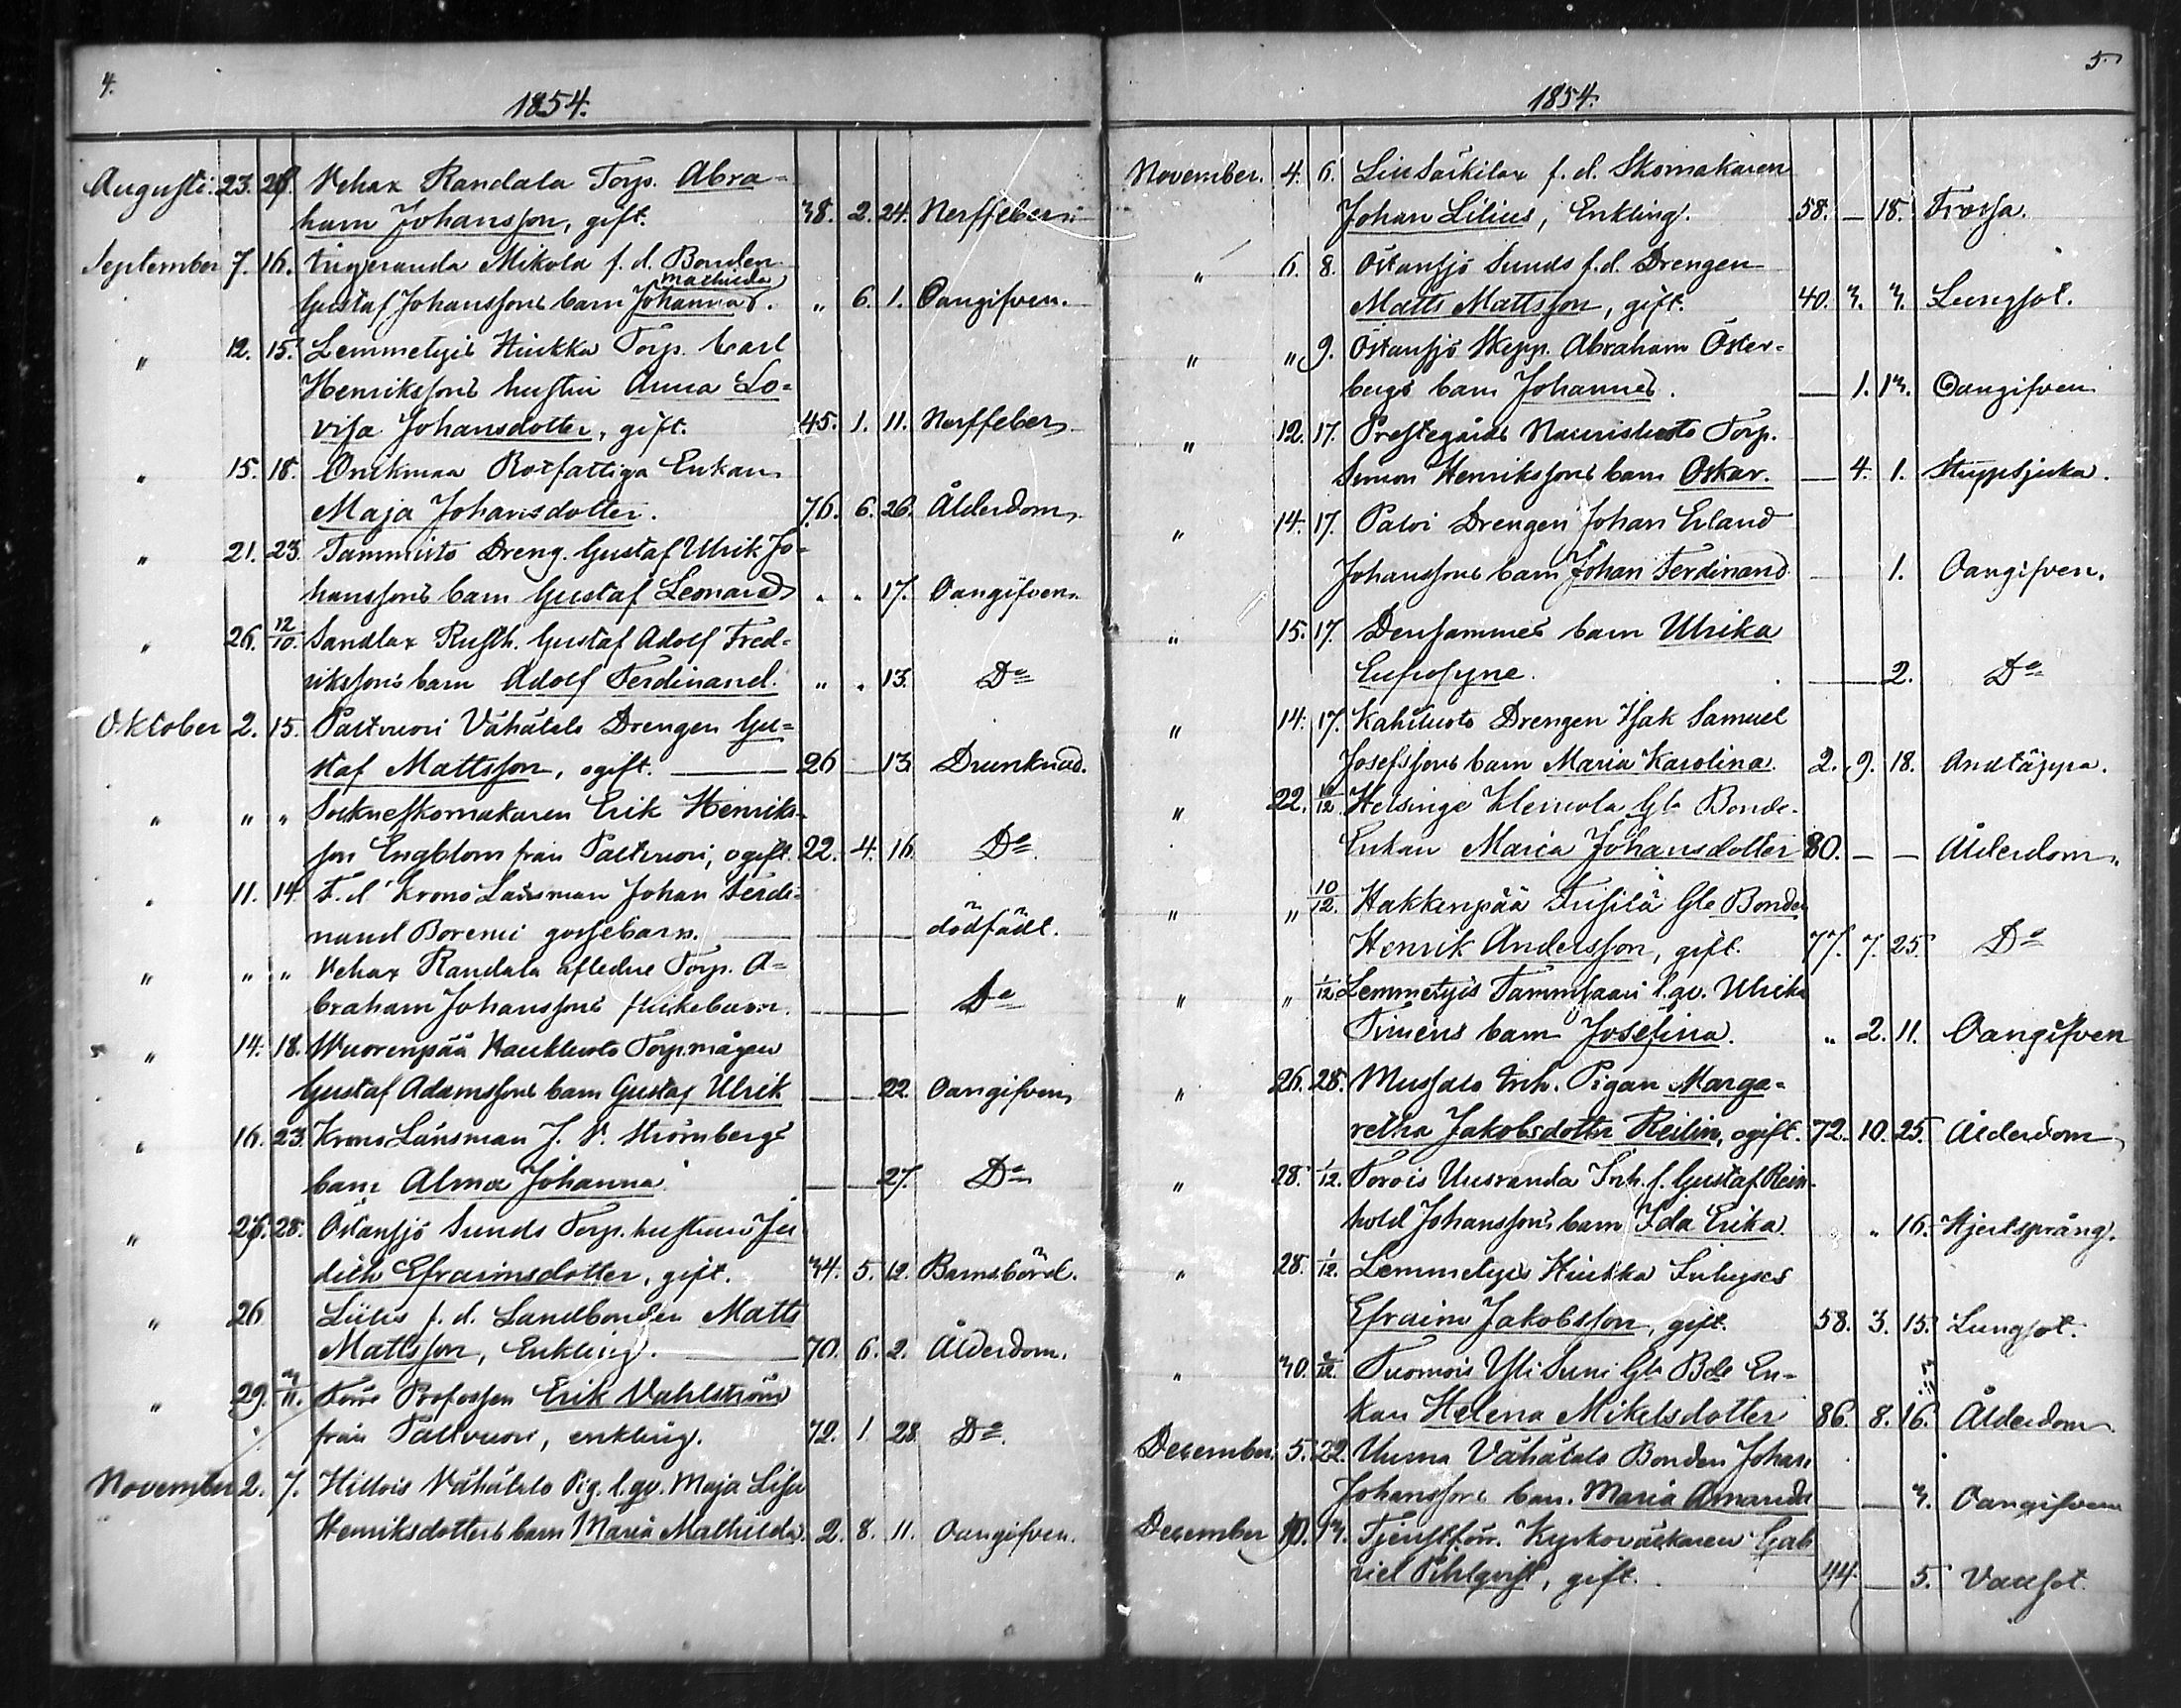 4.
1854.
Augusti. 23. 28. Vehax Randala Torp. Abra-
ham Johansson, gift. 38. 2. 24. Nerffeber.
September 7. 16. Mikola f. d. Bonden
Mathilda
Gustaf Johanssons barn Johanna. " 6. 1. Oangifven.
" 12. 15. Lemmetyis Hiukka Torp. Carl
Henrikssons hustru Anna Lo-
visa Johansdotter, gift. 45. 1. 11. Nerffeber
" 15. 18. Onikmaa Rotfattiga Enkan
Maja Johansdotter. 76. 6. 26. Ålderdom.
" 21. 23. Tammisto Dreng. Gustaf Ulrik Jo-
hanssons barn Gustaf Leonard " " 17. Oangifven.
" 26. 12/10. Sandlax Rusth. Gustaf Adolf Fred-
rikssons barn Adolf Ferdinand. " " 13. Do
Oktober 2. 15. Paltvuori Vähätalo Drengen Gu-
staf Mattsson, ogift. 26 — 13. Drunknad.
" " " Socknesskomakaren Erik Henriks-
son Engblom från Paltvuori, ogift. 22. 4. 16. Do
" 11. 14. F. d. Krono Länsman Johan Ferdi-
nand Borenii gossebarn. — dödfödt.
" " " Vehax Randala afledne Torp. A-
braham Johanssons flickebarn. — Do
" 14. 18. Wuorenpää Haukluoto Torp. mågen
Gustaf Adamssons barn Gustaf Ulrik — 22. Oangifven
" 16. 23. Krono Länsman J. V. Strömbergs
barn Alma Johanna. — 27. Do
" 26. 28. Östansjö Sunds Torp. hustrun Ju
dith Efraimsdotter, gift. 34. 5. 12. Barnsbörd.
" 26 f. d. Landbonden Matts
Mattsson, Enkling. — 70. 6. 2. Ålderdom.
" 29. 3/11. Förre Profossen Erik Vahlström
från Paltvuori, enkling. 72. 1. 28 Do.
November 2. 7. Hillois Vähätalo Pig. l. qv. Maja Lisa
Henriksdotters barn Maria Mathilda. 2. 8. 11. Oangifven.
5.
1854.
November. 4. 6. Liu Särkilax f. d. Skomakaren
Johan Lilius, Enkling. 58. — 18. Frossa.
" 6. 8. Östansjö Sunds f. d. Drengen
Matts Mattsson, gift. 40. 3. 3. Lungsot.
" " 9. Östansjö Skepp. Abraham Öster-
bergs barn Johannes. — 1. 13. Oangifven
" 12. 17. Prestegårds Naurisluoto Torp.
Simon Henrikssons barn Oskar. — 4. 1. Strypsjuka.
" 14. 17. Paloi Drengen Johan Erland
Johanssons barn Johan Ferdinand — 1. Oangifven.
" 15. 17. Densammes barn Ulrika
Eufrosyne. — 2. Do
" 14. 17. Kahiluoto Drengen Isak Samuel
Josefssons barn Maria Karolina. 2. 9. 18. Andtäppa.
" 22. 10/12. Helsinge Klemola Gla Bonde-
Enkan Maria Johansdotter 80. — — Ålderdom.
" " 10/12. Hakkenpää Gle Bonden
Henrik Andersson, gift. 77. 7. 25. Do
" " 1/12 Lemmetyis Tammisaari l. qv. Ulrika
Timens barn Josefina. " 2. 11. Oangifven
" 26. 28. Mussalo Inh. Pigan Marga-
retha Jakobsdotter Reilin, ogift. 72. 10. 25. Ålderdom
" 28. 1/12. Torois Uusranda Inh. f. Gustaf Rein-
hold Johanssons barn Ida Erika. " 16. Hjertsprång.
" 28. 1/12. Lemmetyis Hiukka Inhyses
Efraim Jakobsson, gift. 58. 3. 15. Lungsot.
" 30. 2/12. Tuomois Yli Suni Gla Bde En-
kan Helena Mikelsdotter 86. 8. 16. Ålderdom
December. 5. 22. Unma Vähätalo Bonden Johan
Johanssons barn. Maria Amanda — — 3. Oangifven
December 10. 13. Tjenstförr. Kyrkoväktaren Gab
riel Pihlqvist, gift. 44. — 5. Vattsot.